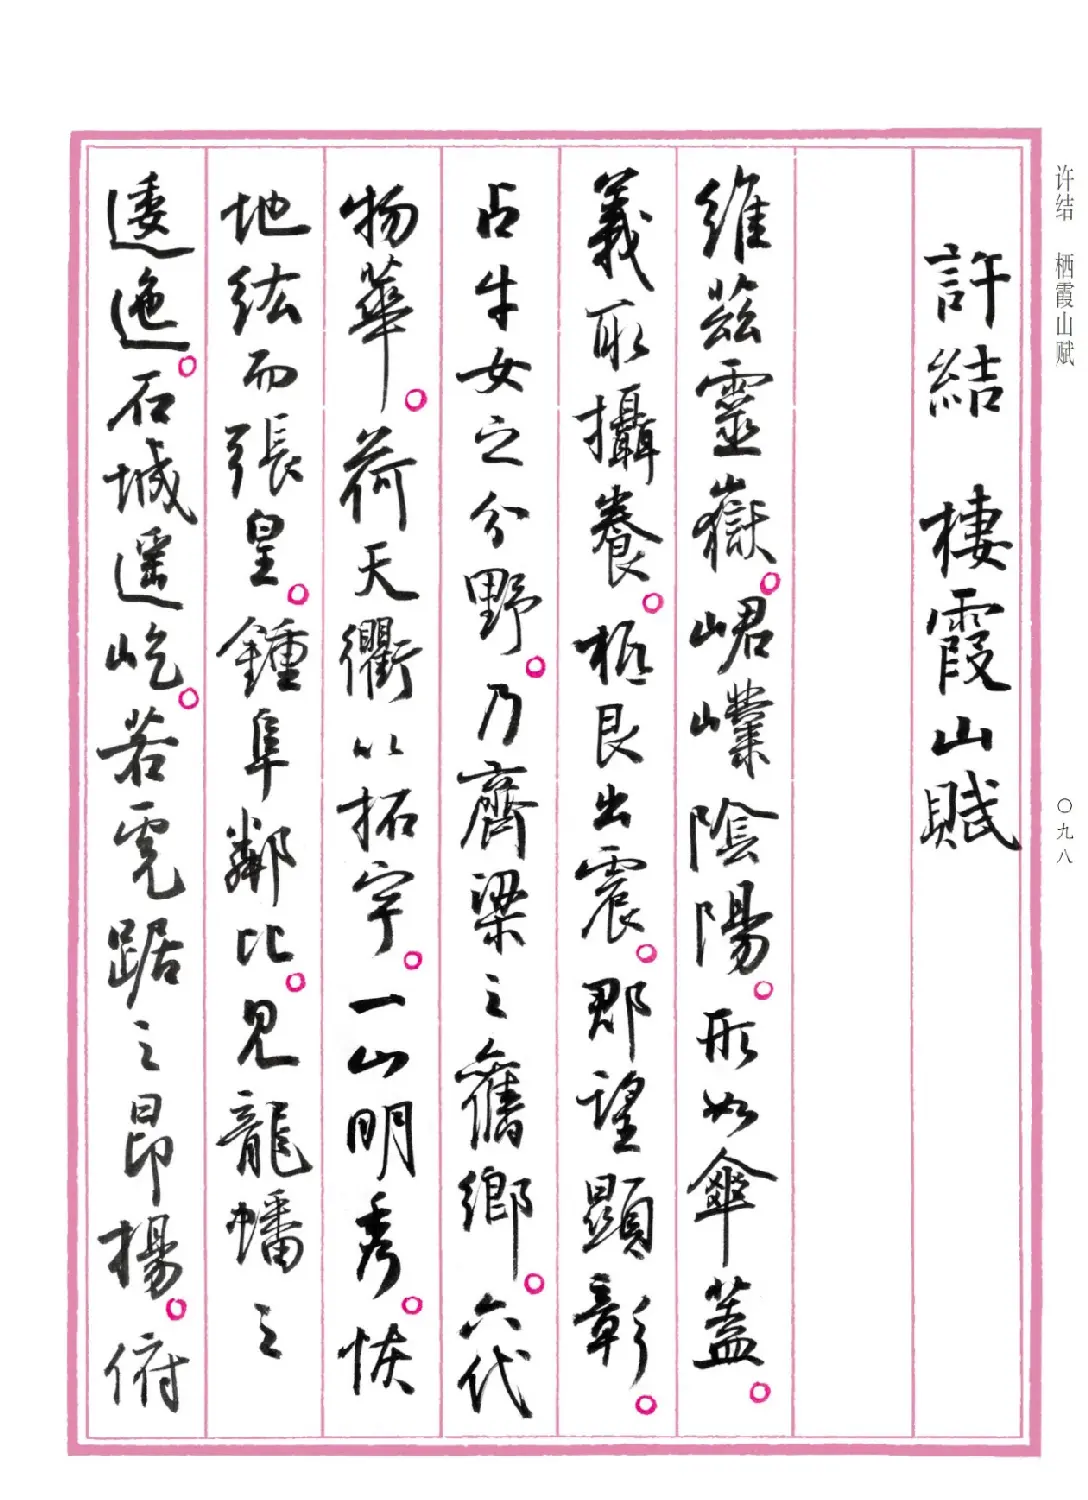 许结 栖霞山赋
〇九八
許結 棲霞山賦
維兹靈嶽。崌㠔陰陽。形如傘蓋。
義取攝養。柢艮出震。郡望顯彰。
占牛女之分野。乃齊梁之舊鄉。六代
物華。荷天衢以拓宇。一山明秀。恢
地紘而張皇。鍾阜鄰比。見龍蟠之
逶迤。石城遥屹。若虎踞之昂揚。俯